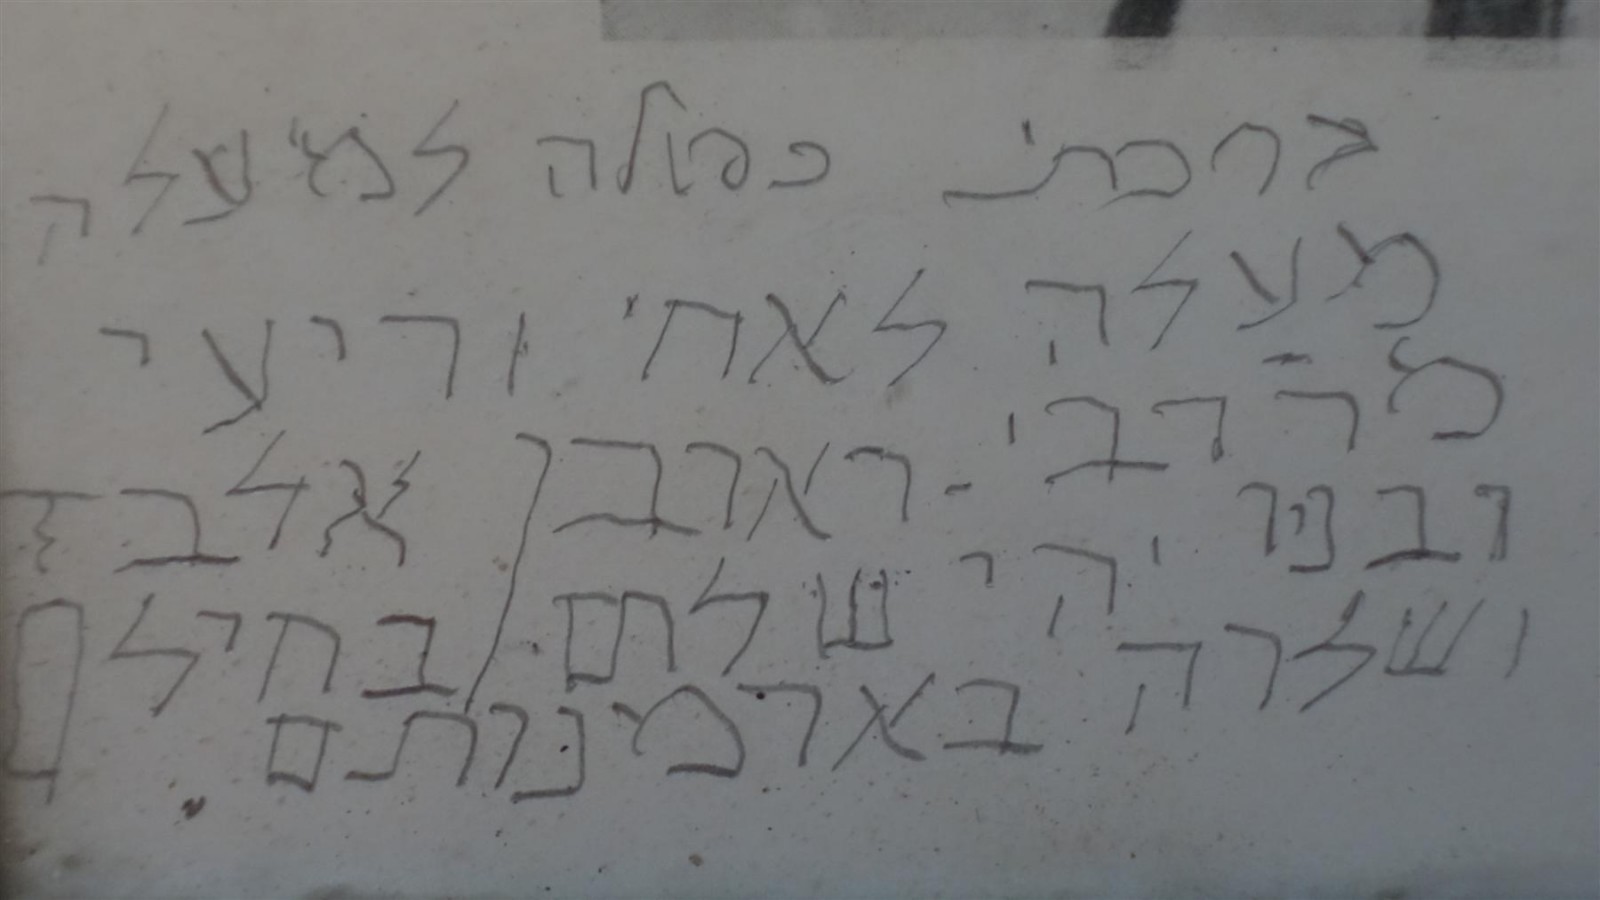 ברכתי כפולה למעלה
מעלה לאחי וריעי
מר רבי ראובן אלבז
ובניו יהי שלום בחילם
ושלוה בארמנותם.